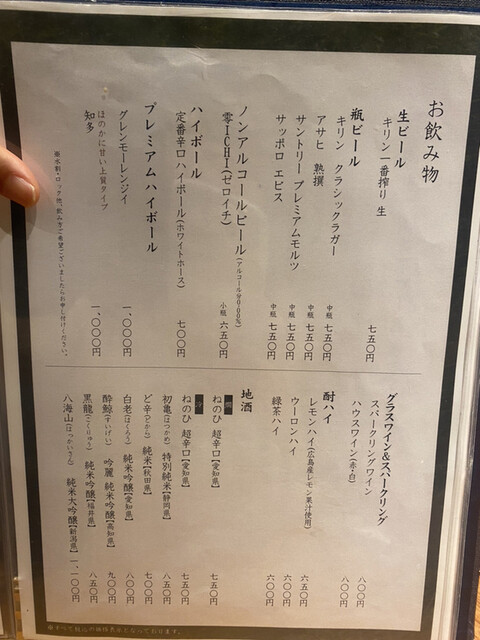 お飲み物
生ビール
キリン 一番搾り 生 七五〇円
瓶ビール
キリン クラシックラガー 中瓶 七五〇円
アサヒ 熟撰 中瓶 七五〇円
サントリー プレミアムモルツ 中瓶 七五〇円
サッポロ エビス 中瓶 七五〇円
ノンアルコールビール(アルコール分0.00%)
零ICHI(ゼロイチ) 小瓶 六五〇円
ハイボール
定番辛口ハイボール(ホワイトホース) 七〇〇円
プレミアムハイボール
グレンモーレンジィ 一、〇〇〇円
ほのかに甘い上質タイプ
知多 一、〇〇〇円
※水割・ロック他、飲み方ご希望ございましたらお申し付けください。
グラスワイン&スパークリング
スパークリングワイン 八〇〇円
ハウスワイン(赤・白) 八〇〇円
酎ハイ
レモンハイ(広島産レモン果汁使用) 六五〇円
ウーロンハイ 六〇〇円
緑茶ハイ 六〇〇円
地酒
ねのひ 超辛口【愛知県】 七五〇円
ねのひ 超辛口【愛知県】 七五〇円
初亀(はつかめ) 特別純米【静岡県】 八五〇円
ど辛(どから) 純米【秋田県】 七〇〇円
白老(はくろう) 純米吟醸【愛知県】 八〇〇円
酔鯨(すいげい) 吟麗 純米吟醸【高知県】 九〇〇円
黒龍(こくりゅう) 純米吟醸【福井県】 八五〇円
八海山(はっかいさん) 純米大吟醸【新潟県】 一、一〇〇円
※すべて税込の価格表示となっております。